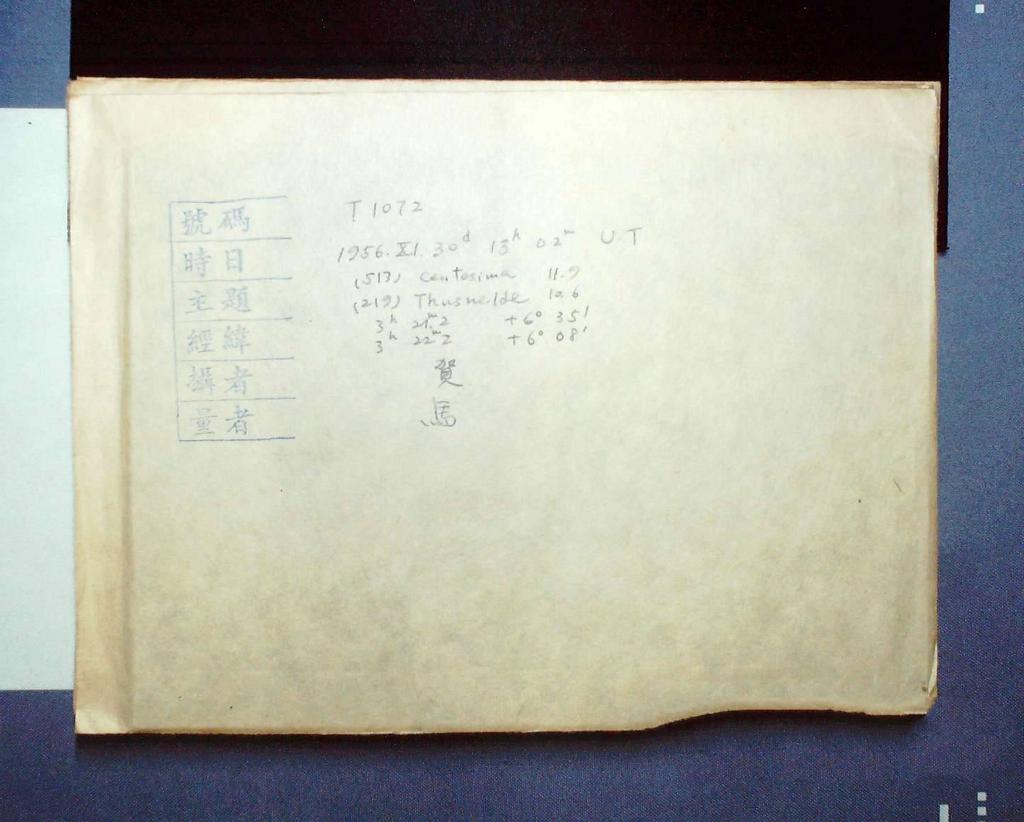 號碼 T 1072
時日 1956. XI. 30ᵈ 13ʰ 02ᵐ U.T
主題 (513) Centesima 11.9
(219) Thusnelde 10.6
經緯 3ʰ 21ᵐ.2 +6° 35'
3ʰ 22ᵐ.2 +6° 08'
攝者 賀
量者 馬